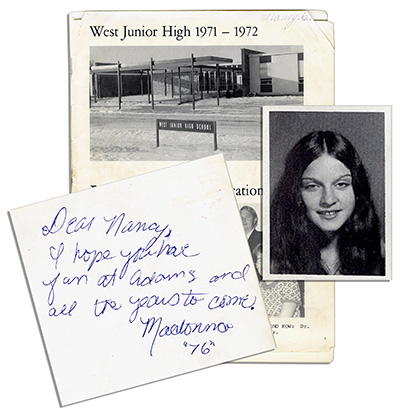 Nancy
West Junior High 1971 – 1972
WEST JUNIOR HIGH SCHOOL
cation
Dear Nancy,
I hope you have
fun at Adams and
all the years to come!
Madonna
"76"
ND ROW: Dr.